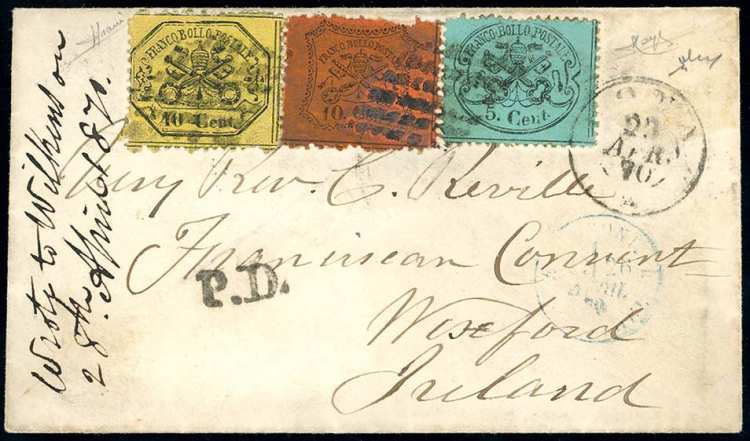 FRANCO BOLLO POSTALE
40 Cent.
FRANCO BOLLO POSTALE
10
FRANCO BOLLO POSTALE
5 Cent.
ROMA
23
APR.
70
Very Rev. C. Reville
Franciscan Convent
P.D.
Wexford
Ireland
Wrote to Wilkinson on
28th April 1870.